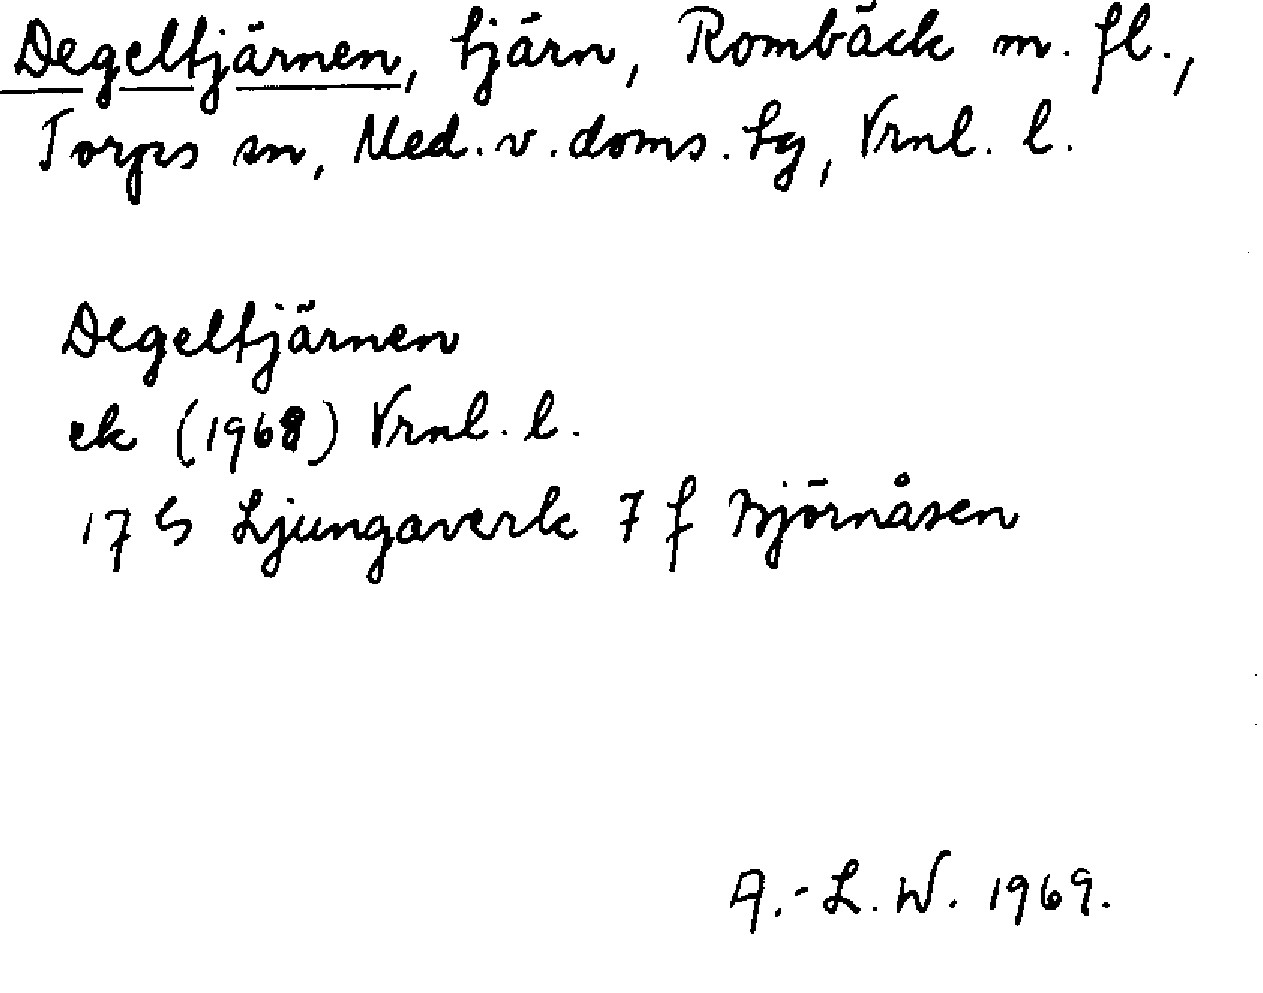 Degeltjärnen, tjärn, Rombäck m. fl.,
Torps sn, Med. v. doms. tg, Vrnl. l.
Degeltjärnen
ek (1968) Vrnl. l.
17 G Ljungaverk 7 f Björnåsen
A.-L. W. 1969.